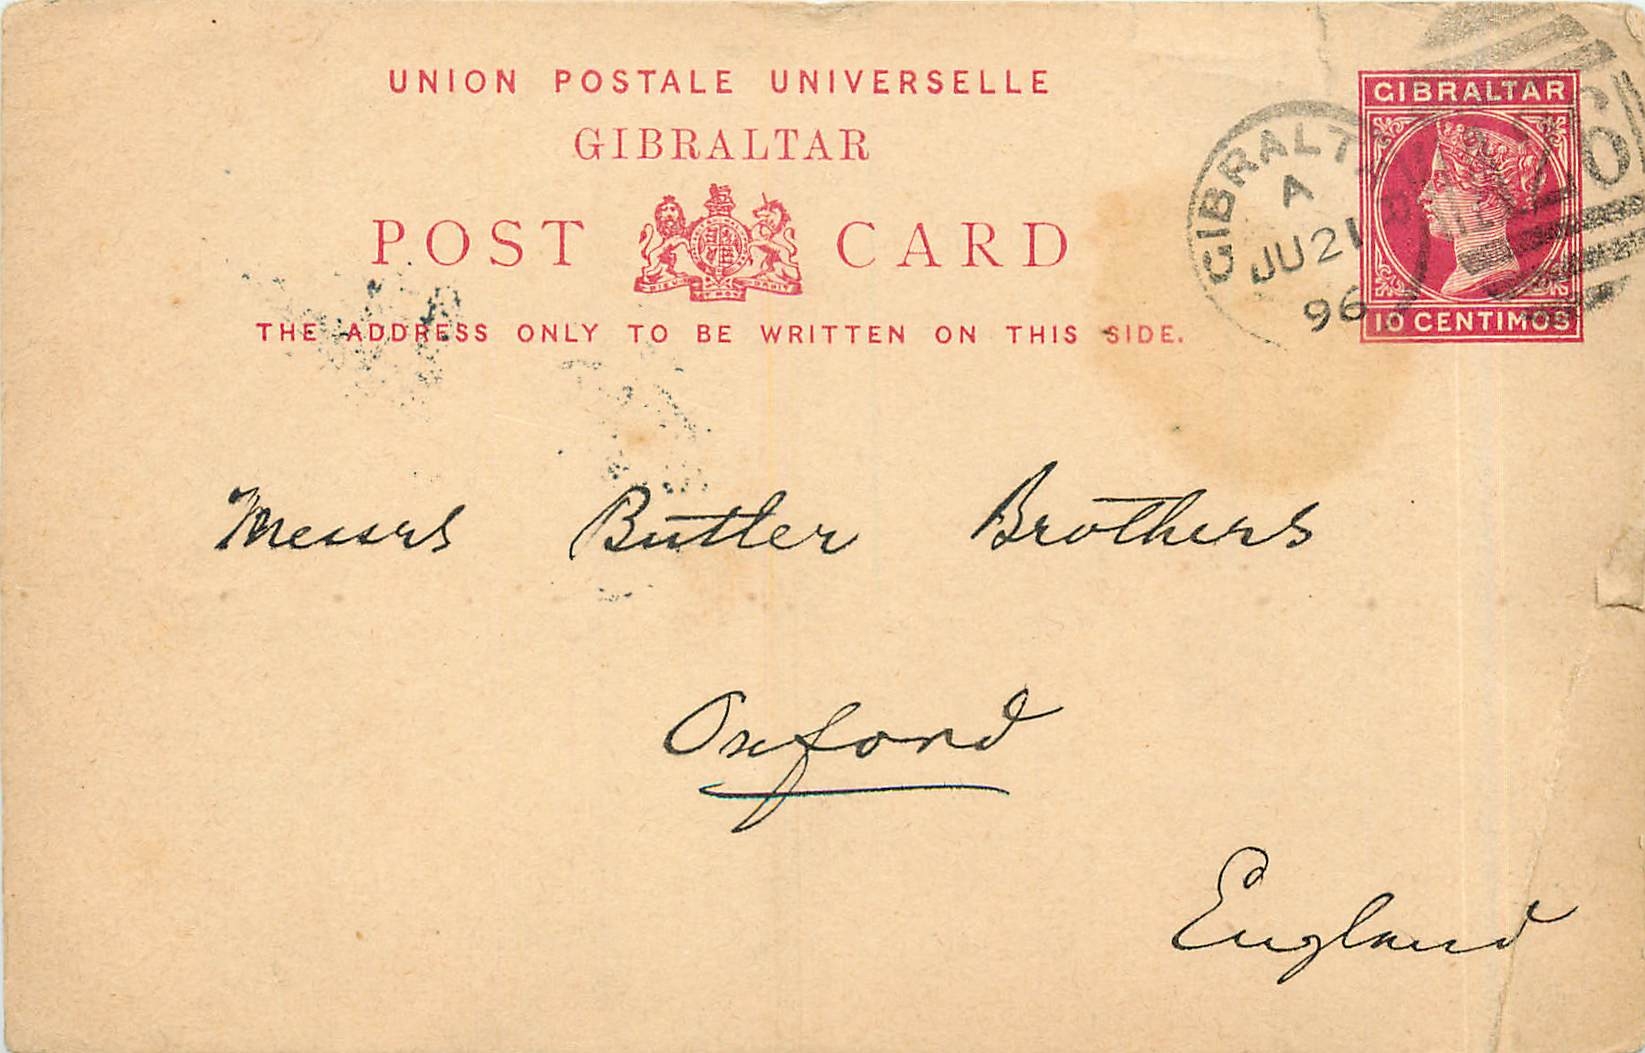 UNION POSTALE UNIVERSELLE
GIBRALTAR
POST CARD
DIEU ET MON DROIT
THE ADDRESS ONLY TO BE WRITTEN ON THIS SIDE.
GIBRALTAR
10 CENTIMOS
GIBRALTAR
A
JU 21
96
A26
Messrs Butler Brothers
Oxford
England